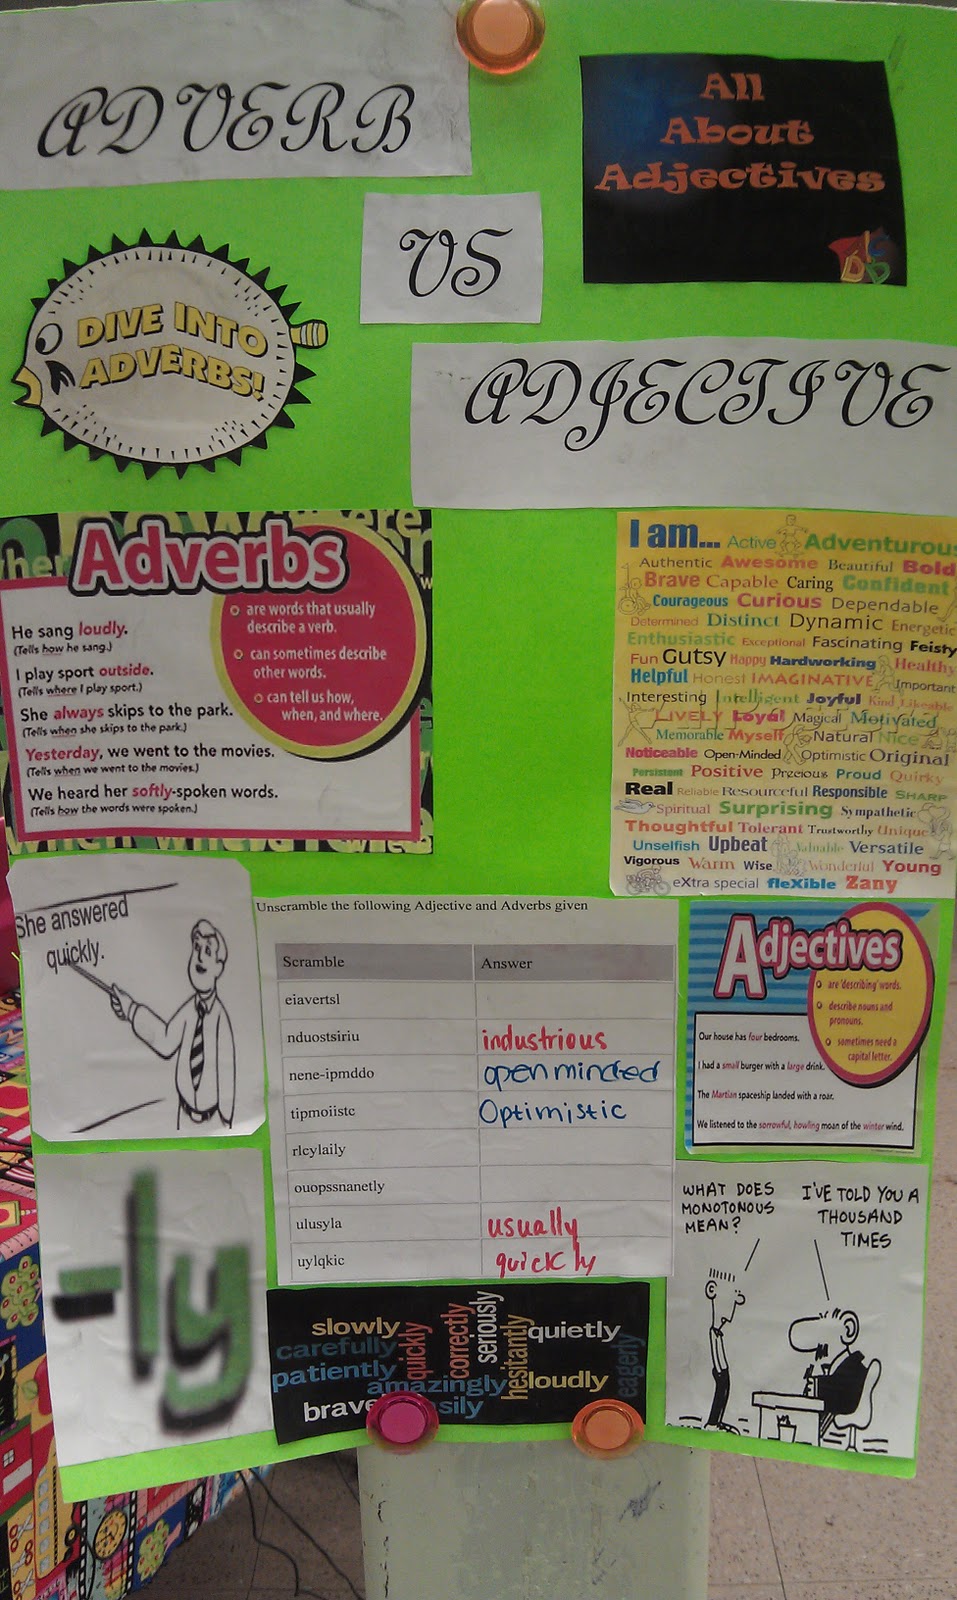 ADVERB
All
About
Adjectives
VS
DIVE INTO
ADVERBS!
ADJECTIVE
Adverbs
are words that usually
describe a verb.
can sometimes describe
other words.
can tell us how,
when, and where.
He sang loudly.
(Tells how he sang.)
I play sport outside.
(Tells where I play sport.)
She always skips to the park.
(Tells when she skips to the park.)
Yesterday, we went to the movies.
(Tells when we went to the movies.)
We heard her softly-spoken words.
(Tells how the words were spoken.)
I am... Active Adventurous
Authentic Awesome Beautiful Bold
Brave Capable Caring Confident
Courageous Curious Dependable
Determined Distinct Dynamic Energetic
Enthusiastic Exceptional Fascinating Feisty
Fun Gutsy Happy Hardworking Healthy
Helpful Honest IMAGINATIVE Important
Interesting Intelligent Joyful Kind Likeable
LIVELY Loyal Magical Motivated
Memorable Myself Natural Nice
Noticeable Open-Minded Optimistic Original
Persistent Positive Precious Proud Quirky
Real Reliable Resourceful Responsible SHARP
Spiritual Surprising Sympathetic
Thoughtful Tolerant Trustworthy Unique
Unselfish Upbeat Valuable Versatile
Vigorous Warm Wise Wonderful Young
eXtra special fleXible Zany
She answered
quickly.
Unscramble the following Adjective and Adverbs given
Scramble Answer
eiavertsl
nduostsiriu industrious
nene-ipmddo open minded
tipmoiistc Optimistic
rlcylaily
ouopssnanetly
ulusyla usually
uylqkic quickly
Adjectives
are 'describing' words.
describe nouns and
pronouns.
sometimes need a
capital letter.
Our house has four bedrooms.
I had a small burger with a large drink.
The Martian spaceship landed with a roar.
We listened to the sorrowful, howling moan of the winter wind.
-ly
slowly
carefully
patiently
quickly
amazingly
correctly
seriously
hesitantly
quietly
loudly
eagerly
WHAT DOES
MONOTONOUS
MEAN?
I'VE TOLD YOU A
THOUSAND
TIMES